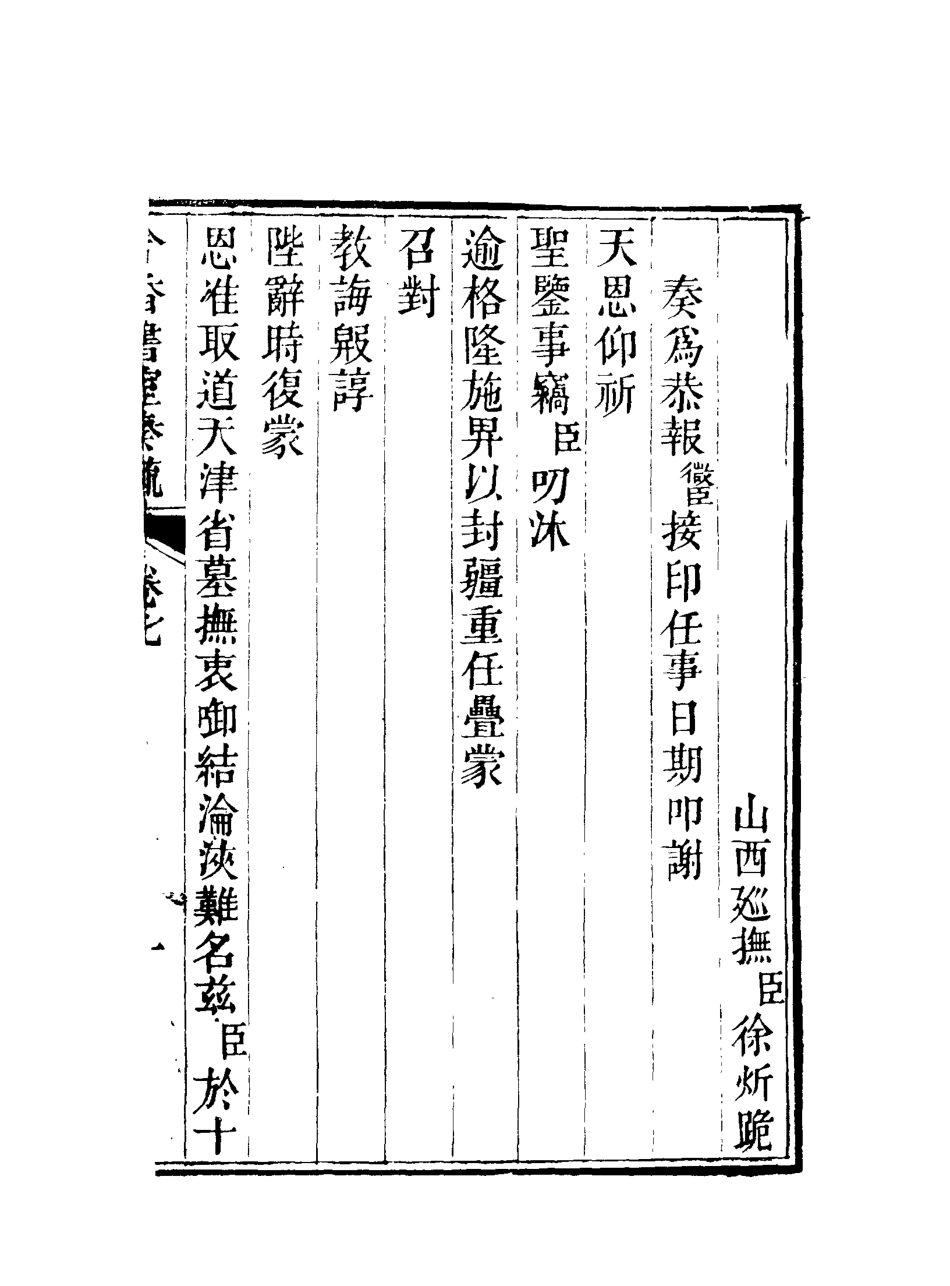 山西廵撫臣徐炘跪
奏爲恭報微臣接印任事日期叩謝
天恩仰祈
聖鑒事竊臣叨沐
逾格隆施畀以封疆重任疊蒙
召對
教誨殷諄
陛辭時復蒙
恩准取道天津省墓撫衷啣結淪浹難名兹臣於十
書室奏疏 卷七 一